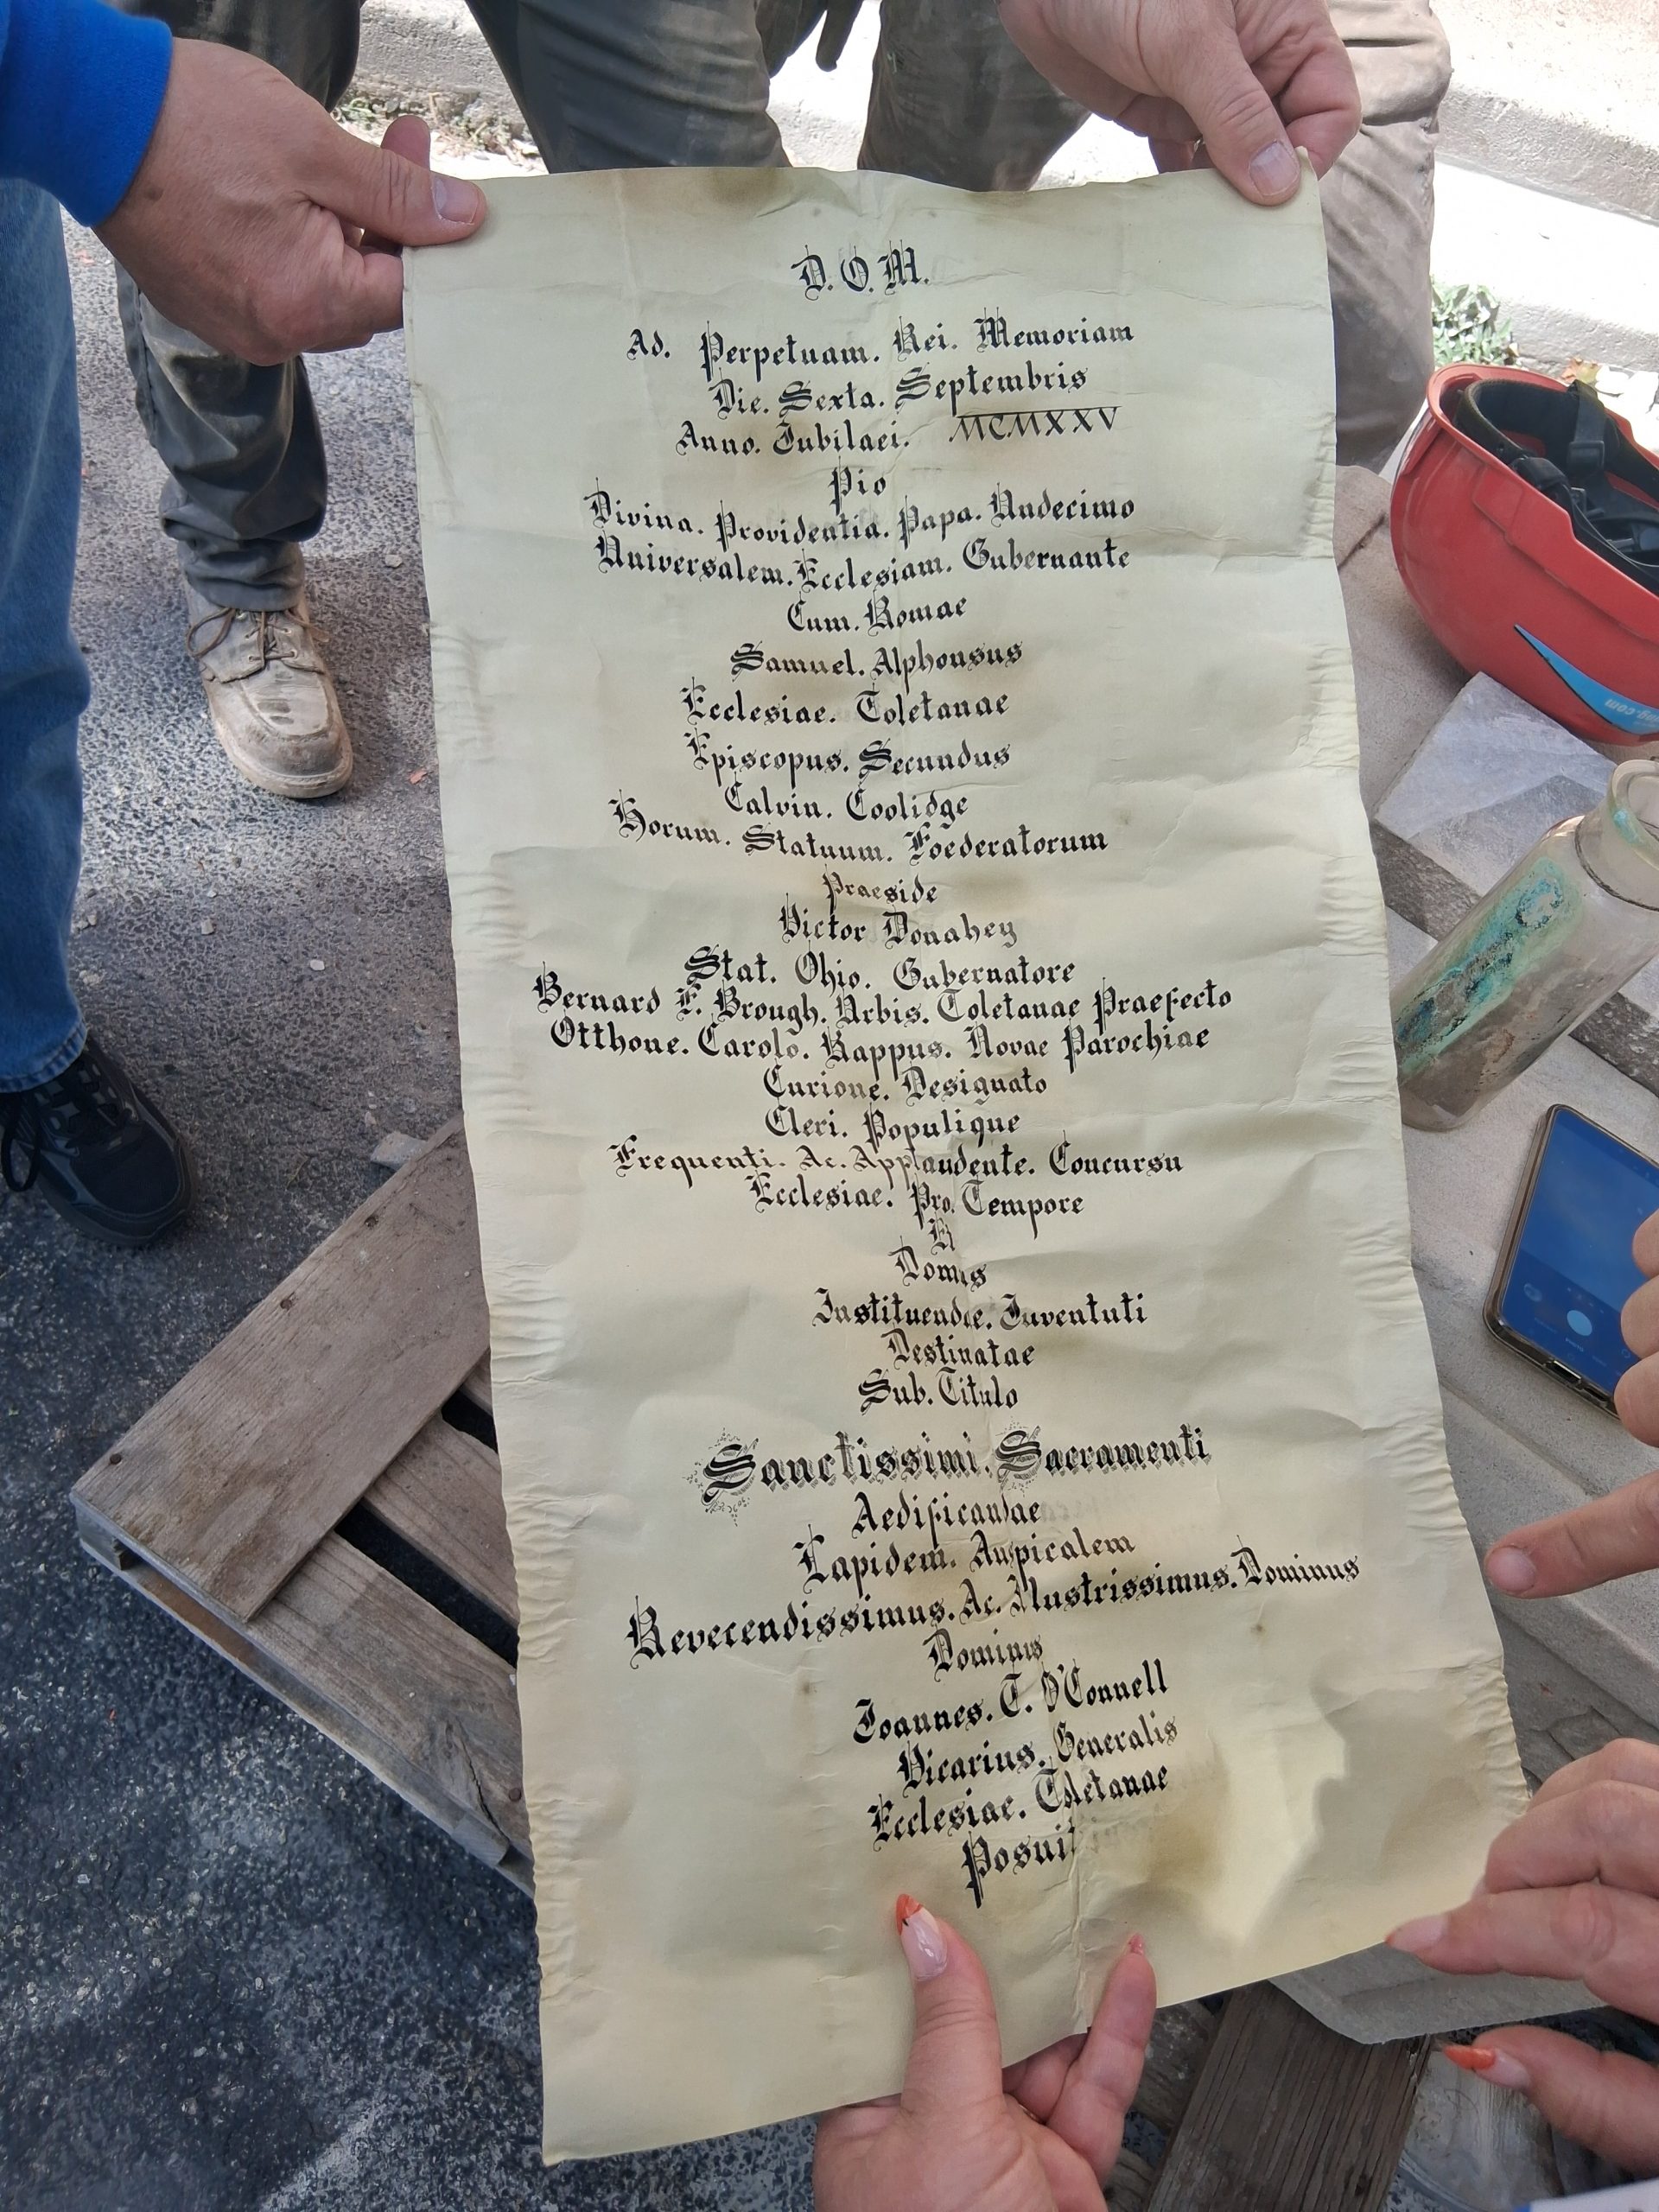 D. O. M.
Ad. Perpetuam. Rei. Memoriam
Die. Sexta. Septembris
Anno. Jubilaei. MCMXXV
Pio
Divina. Providentia. Papa. Undecimo
Universalem. Ecclesiam. Gubernante
Cum. Romae
Samuel. Alphonsus
Ecclesiae. Toletanae
Episcopus. Secundus
Calvin. Coolidge
Horum. Statuum. Foederatorum
Praeside
Victor Donahey
Stat. Ohio. Gubernatore
Bernard F. Brough. Urbis. Toletanae Praefecto
Otthone. Carolo. Rappus. Novae Parochiae
Curione. Designato
Cleri. Populique
Frequenti. Ac. Applaudente. Concursu
Ecclesiae. Pro. Tempore
Domus
Instituendae. Juventuti
Destinatae
Sub. Titulo
Sanctissimi. Sacramenti
Aedificandae
Lapidem. Auspicalem
Reverendissimus. Ac. Illustrissimus. Dominus
Dominus
Joannes. T. O'Connell
Vicarius. Generalis
Ecclesiae. Toletanae
Posuit